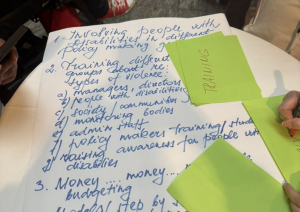 1. Involving people with
disabilities in different
policy making
2. Training different
groups about
types of violence:
a) managers, directors
b) people with disabilities
c) society/communities
d) monitoring bodies
e) admin staff
f) policy makers training/
g) raising awareness for people with
disabilities
3. Money.... money...
budgeting
step by
TRAINING